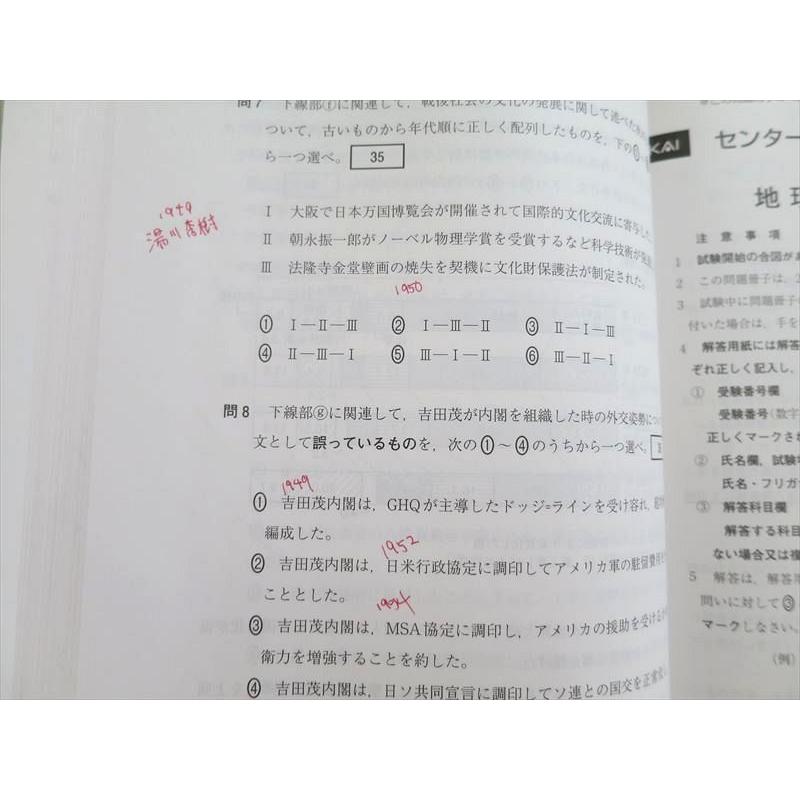 問7 下線部ⓕに関連して，戦後社会の文化の発展に関して述べた
ついて，古いものから年代順に正しく配列したものを，下の①
ら一つ選べ。 35
1949
湯川秀樹
Ⅰ 大阪で日本万国博覧会が開催されて国際的文化交流に寄与した
Ⅱ 朝永振一郎がノーベル物理学賞を受賞するなど科学技術が発
Ⅲ 法隆寺金堂壁画の焼失を契機に文化財保護法が制定された。
1950
① Ⅰ―Ⅱ―Ⅲ ② Ⅰ―Ⅲ―Ⅱ ③ Ⅱ―Ⅰ―Ⅲ
④ Ⅱ―Ⅲ―Ⅰ ⑤ Ⅲ―Ⅰ―Ⅱ ⑥ Ⅲ―Ⅱ―Ⅰ
問8 下線部ⓖに関連して，吉田茂が内閣を組織した時の外交姿勢につ
文として誤っているものを，次の①～④のうちから一つ選べ。
1949
① 吉田茂内閣は，GHQが主導したドッジ=ラインを受け容れ，
編成した。
1952
② 吉田茂内閣は，日米行政協定に調印してアメリカ軍の駐留費用
こととした。
1954
③ 吉田茂内閣は，MSA協定に調印し，アメリカの援助を受ける
衛力を増強することを約した。
④ 吉田茂内閣は，日ソ共同宣言に調印してソ連との国交を正常
KAI センター
地理
注意事項
1 試験開始の合図があ
2 この問題冊子は，2
3 試験中に問題冊子の
付いた場合は，手を
4 解答用紙には解答
ぞれ正しく記入し，
① 受験番号欄
受験番号(数字
正しくマークされ
② 氏名欄，試験場
氏名・フリガナ
③ 解答科目欄
解答する科目
ない場合又は複
5 解答は，解答用
問いに対して③
マークしなさい。
(例)